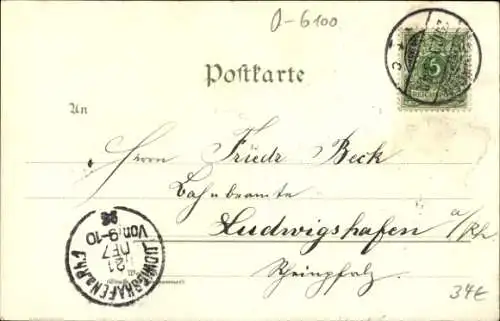 O-6100
Postkarte
5
An
Herrn Friedr Beck
Bahnbeamte
Ludwigshafen a/Rh
Rheinpfalz
LUDWIGSHAFEN a. RH.
21 DEZ
Von 9-10
98
34€